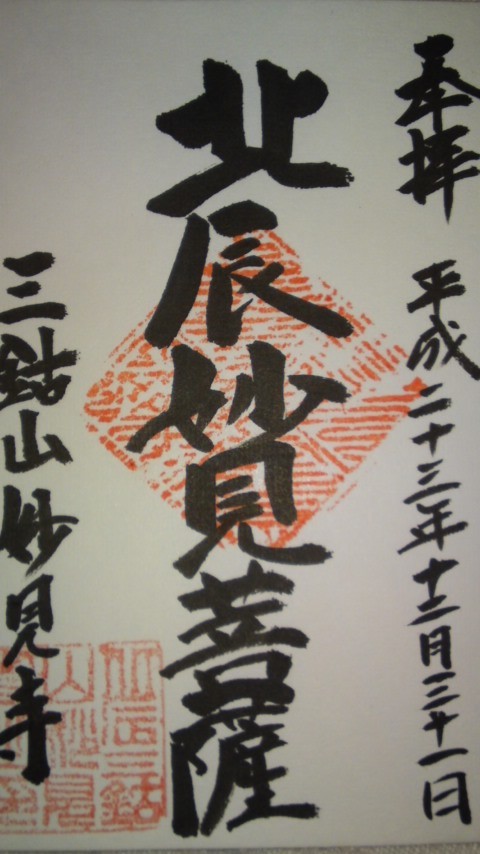 奉拝 平成二十三年十二月三十一日
北辰妙見菩薩
三鈷山妙見寺